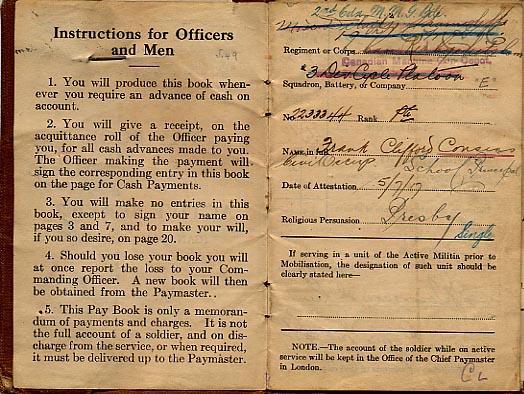 Instructions for Officers
and Men
1. You will produce this book when-
ever you require an advance of cash on
account.
2. You will give a receipt, on the
acquittance roll of the Officer paying
you, for all cash advances made to you.
The Officer making the payment will
sign the corresponding entry in this book
on the page for Cash Payments.
3. You will make no entries in this
book, except to sign your name on
pages 3 and 7, and to make your will,
if you so desire, on page 20.
4. Should you lose your book you will
at once report the loss to your Com-
manding Officer. A new book will then
be obtained from the Paymaster..
5. This Pay Book is only a memoran-
dum of payments and charges. It is not
the full account of a soldier, and on dis-
charge from the service, or when required,
it must be delivered up to the Paymaster.
2nd Cdn. M.M.G. Bde.
Regiment or Corps
Canadian Machine Gun Depot.
Squadron, Battery, or Company "E"
No. 2233344 Rank Pte
NAME in full Frank Clifford Cousins
Civil Occup School Principal
Date of Attestation 5/7/17
Religious Persuasion Presby
Single
If serving in a unit of the Active Militia prior to
Mobilisation, the designation of such unit should be
clearly stated here—
NOTE.—The account of the soldier while on active
service will be kept in the Office of the Chief Paymaster
in London.
CL